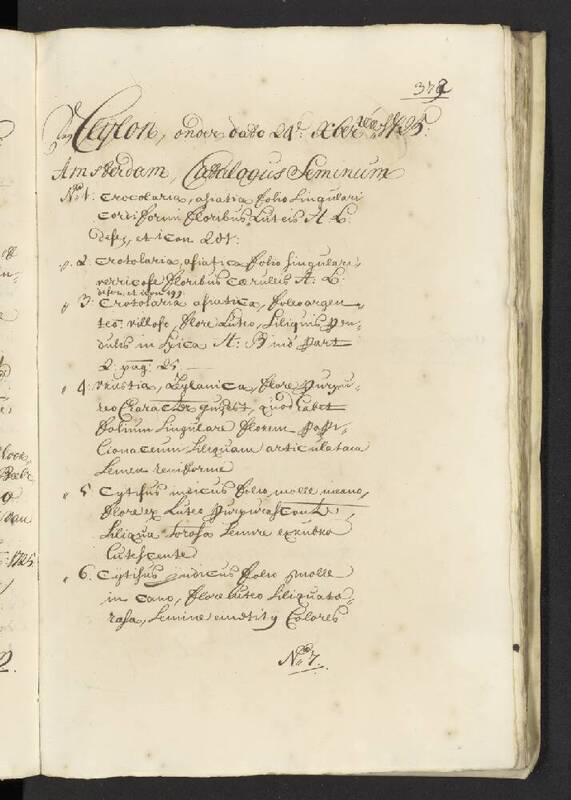 378
Ceylon, onder dato 24:e Xber 1725:
Amsterdam, Catalogus Seminum
No. 1: Crocolaria, asiatica folio Singulari
Cordiformi floribus Luteis H: L:
desig, et icon 201:
" 2: Crotolaria, asiatica folio Singulari
verricose floribus Caeruleis H: L:
desig. et icon 199.
" 3: Crotolaria asiatica, folio argen
teo villoso, flore Luteo, Siliquis pen
dulis in spica H: B ind: part
2: pag: 25
" 4: Zylanica, flore purpu
reo Character quest, quod habet
folium Singulare florem papi-
lionaceum Siliquam articulatam
Semen reniforme
" 5 Cytisus indicus folio molle incano,
flore ex Luteo purpurascente
Siliqua torosa Semine ex rubro
Lutescente
" 6. Cytisus indicus folio molle
in Cano, flore luteo Siliqua to-
rosa, Semine Colores
No. 7.
1725